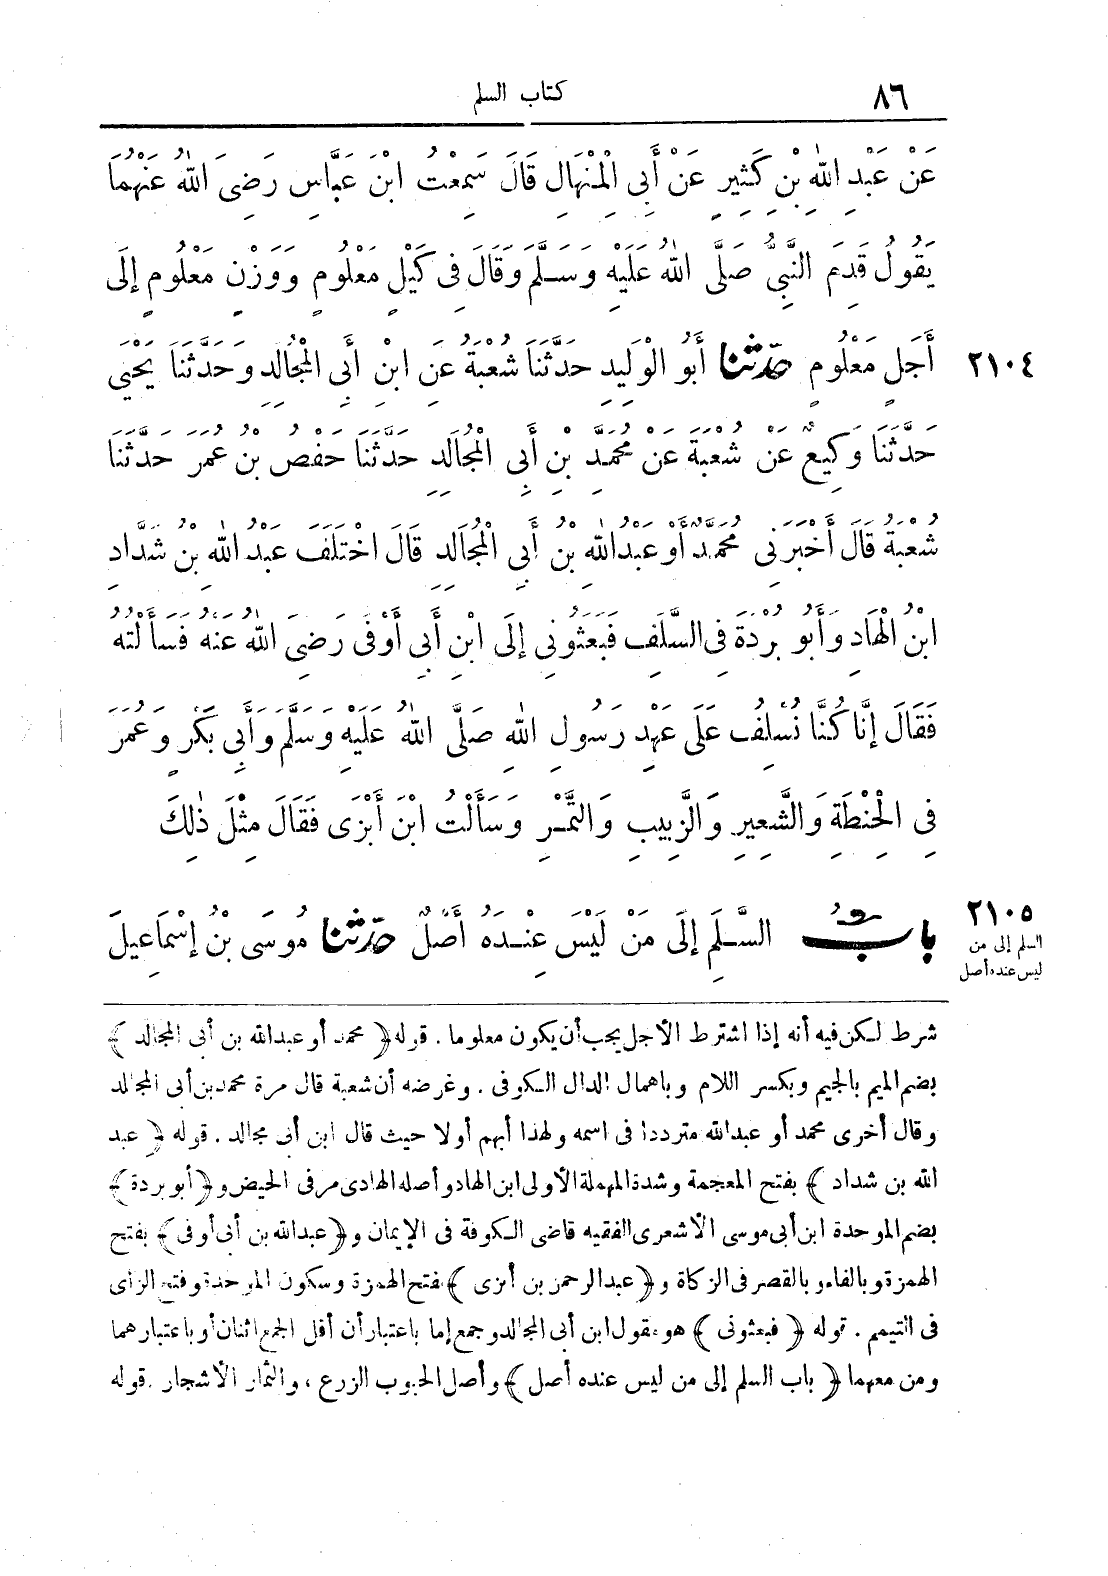 ٨٦
كتاب السلم
عَنْ عَبْدِ اللهِ بْنِ كَثِيرٍ عَنْ أَبِى الْمِنْهَالِ قَالَ سَمِعْتُ ابْنَ عَبَّاسٍ رَضِىَ اللهُ عَنْهُمَا
يَقُولُ قَدِمَ النَّبِىُّ صَلَّى اللهُ عَلَيْهِ وَسَلَّمَ وَقَالَ فِى كَيْلٍ مَعْلُومٍ وَوَزْنٍ مَعْلُومٍ إِلَى
٢١٠٤ أَجَلٍ مَعْلُومٍ حدثنا أَبُو الْوَلِيدِ حَدَّثَنَا شُعْبَةُ عَنِ ابْنِ أَبِى الْمُجَالِدِ وَحَدَّثَنَا يَحْيَى
حَدَّثَنَا وَكِيعٌ عَنْ شُعْبَةَ عَنْ مُحَمَّدِ بْنِ أَبِى الْمُجَالِدِ حَدَّثَنَا حَفْصُ بْنُ عُمَرَ حَدَّثَنَا
شُعْبَةُ قَالَ أَخْبَرَنِى مُحَمَّدٌ أَوْ عَبْدُ اللهِ بْنُ أَبِى الْمُجَالِدِ قَالَ اخْتَلَفَ عَبْدُ اللهِ بْنُ شَدَّادِ
ابْنُ الْهَادِ وَأَبُو بُرْدَةَ فِى السَّلَفِ فَبَعَثُونِى إِلَى ابْنِ أَبِى أَوْفَى رَضِىَ اللهُ عَنْهُ فَسَأَلْتُهُ
فَقَالَ إِنَّا كُنَّا نُسْلِفُ عَلَى عَهْدِ رَسُولِ اللهِ صَلَّى اللهُ عَلَيْهِ وَسَلَّمَ وَأَبِى بَكْرٍ وَعُمَرَ
فِى الْحِنْطَةِ وَالشَّعِيرِ وَالزَّبِيبِ وَالتَّمْرِ وَسَأَلْتُ ابْنَ أَبْزَى فَقَالَ مِثْلَ ذٰلِكَ
٢١٠٥
السلم إلى من
ليس عنده أصل
بابُ السَّلَمِ إِلَى مَنْ لَيْسَ عِنْدَهُ أَصْلٌ حدثنا مُوسَى بْنُ إِسْمَاعِيلَ
شرط لكن فيه أنه إذا اشترط الأجل يجب أن يكون معلوما . قوله ﴿ محمد أو عبدالله بن أبى المجالد ﴾
بضم الميم بالجيم وبكسر اللام وباهمال الدال الكوفى . وغرضه أن شعبة قال مرة محمد بن أبى المجالد
وقال أخرى محمد أو عبدالله مترددا فى اسمه ولهذا أبهم أولا حيث قال ابن أبى مجالد . قوله ﴿ عبد
الله بن شداد ﴾ بفتح المعجمة وشدة المهملة الأولى ابن الهاد وأصله الهادى مر فى الحيض و ﴿ أبو بردة ﴾
بضم الموحدة ابن أبى موسى الأشعرى الفقيه قاضى الكوفة فى الإيمان و ﴿ عبدالله بن أبى أوفى ﴾ بفتح
الهمزة وبالفاء وبالقصر فى الزكاة و ﴿ عبدالرحمن بن أبزى ﴾ بفتح الهمزة وسكون الموحدة وفتح الزاى
فى التيمم . قوله ﴿ فبعثونى ﴾ هو مقول ابن أبى المجالد وجمع إما باعتبار أن أقل الجمع اثنان أو باعتبارهما
ومن معهما ﴿ باب السلم إلى من ليس عنده أصل ﴾ وأصل الحبوب الزرع ، والثمار الأشجار . قوله